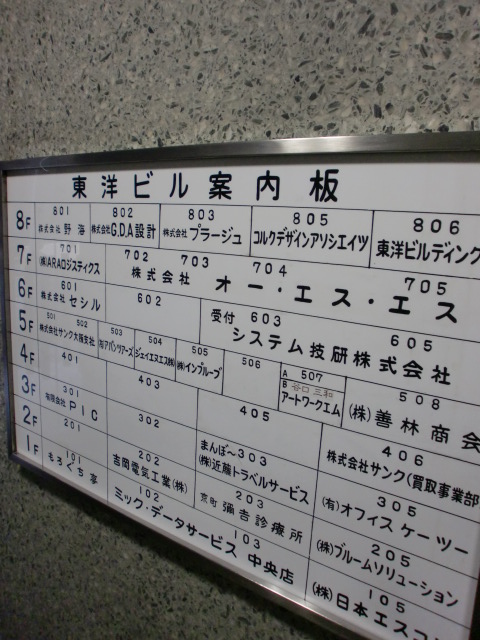 東洋ビル案内板
8F
801
株式会社 野海
802
株式会社 G.D.A設計
803
株式会社 プラージュ
805
コルクデザインアソシエイツ
806
東洋ビルディング
7F
701
(株)ARAロジスティクス
702 703 704 705
株式会社 オー・エス・エス
6F
601
株式会社 セシル
602
受付 603 605
システム技研株式会社
5F
501 502
株式会社サンク大阪支社
503
(有)アバンツアーズ
504
ジェイエヌエス(株)
505
(株)インプルーブ
506
A 507
B 谷口 三和
アートワークエム
508
(株)善林商会
4F
401
403
405
406
株式会社サンク(買取事業部
3F
301
有限会社 PIC
302
まんぼ～303
(株)近藤トラベルサービス
305
(有)オフィスケーツー
2F
201
202
吉岡電気工業(株)
203
京町 彌吉診療所
205
(株)ブルームソリューション
1F
101
もろぐち亭
102
103
ミック・データサービス 中央店
105
(株)日本エスコ